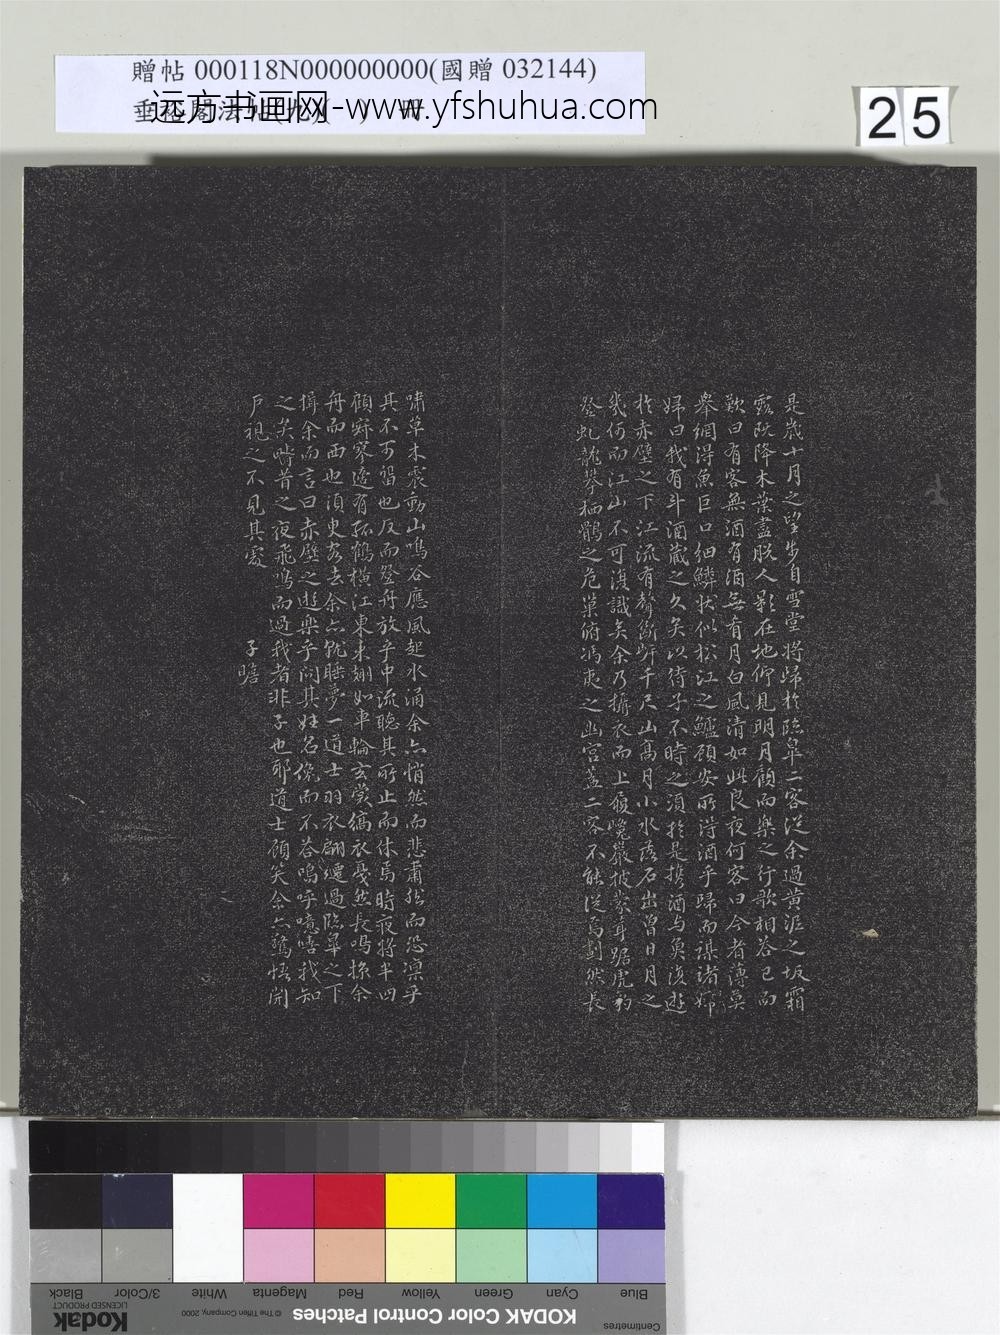 贈帖 000118N000000000(國贈 032144)
远方书画网-www.yfshuhua.com
25
是歲十月之望步自雪堂將歸於臨皋二客從余過黃泥之坂霜
露既降木葉盡脫人影在地仰見明月顧而樂之行歌相答已而
歎曰有客無酒有酒無肴月白風清如此良夜何客曰今者薄莫
舉網得魚巨口細鱗狀似松江之鱸顧安所得酒乎歸而謀諸婦
婦曰我有斗酒藏之久矣以待子不時之須於是攜酒与魚復遊
於赤壁之下江流有聲斷岸千尺山高月小水落石出曾日月之
幾何而江山不可復識矣余乃攝衣而上履巉巖披蒙茸踞虎豹
登虬龍攀栖鶻之危巢俯馮夷之幽宮蓋二客不能從焉劃然長
嘯草木震動山鳴谷應風起水涌余亦悄然而悲肅然而恐凜乎
其不可留也反而登舟放乎中流聽其所止而休焉時夜將半四
顧寂寥適有孤鶴橫江東來翅如車輪玄裳縞衣戛然長鳴掠余
舟而西也須臾客去余亦就睡夢一道士羽衣翩僊過臨皋之下
揖余而言曰赤壁之遊樂乎問其姓名俛而不答嗚呼噫嘻我知
之矣疇昔之夜飛鳴而過我者非子也耶道士顧笑余亦驚悟開
戶視之不見其處
子瞻
Black
3/Color
White
Magenta
Red
Yellow
Green
Cyan
Blue
Kodak
LICENSED PRODUCT
© The Tiffen Company, 2000
KODAK Color Control Patches
Centimetres